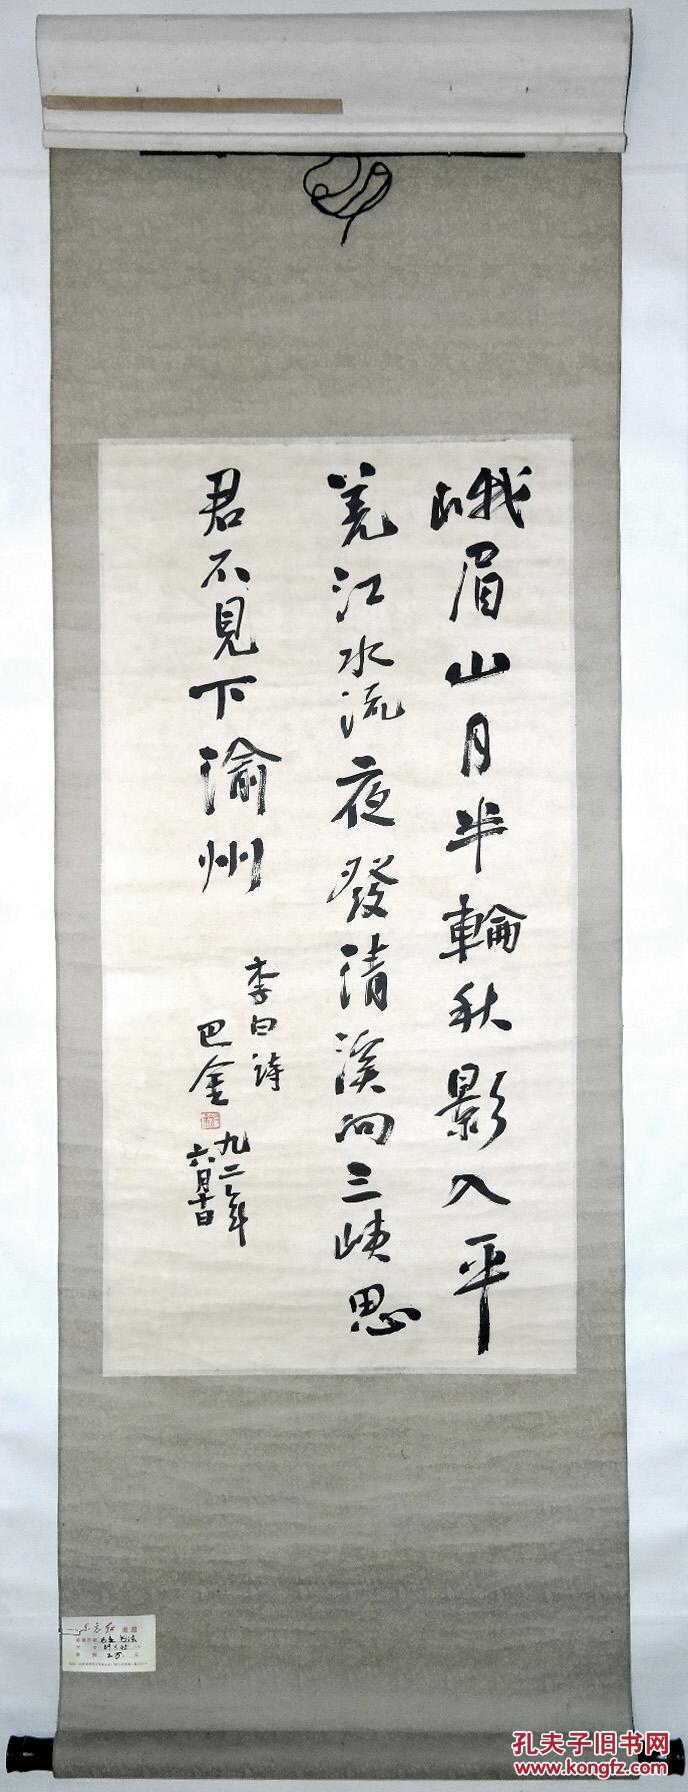 峨眉山月半輪秋影入平
羌江水流夜發清溪向三峡思
君不見下渝州
李白詩
巴金
九二年
六月十日
东方红 画廊
孔夫子旧书网
www.kongfz.com